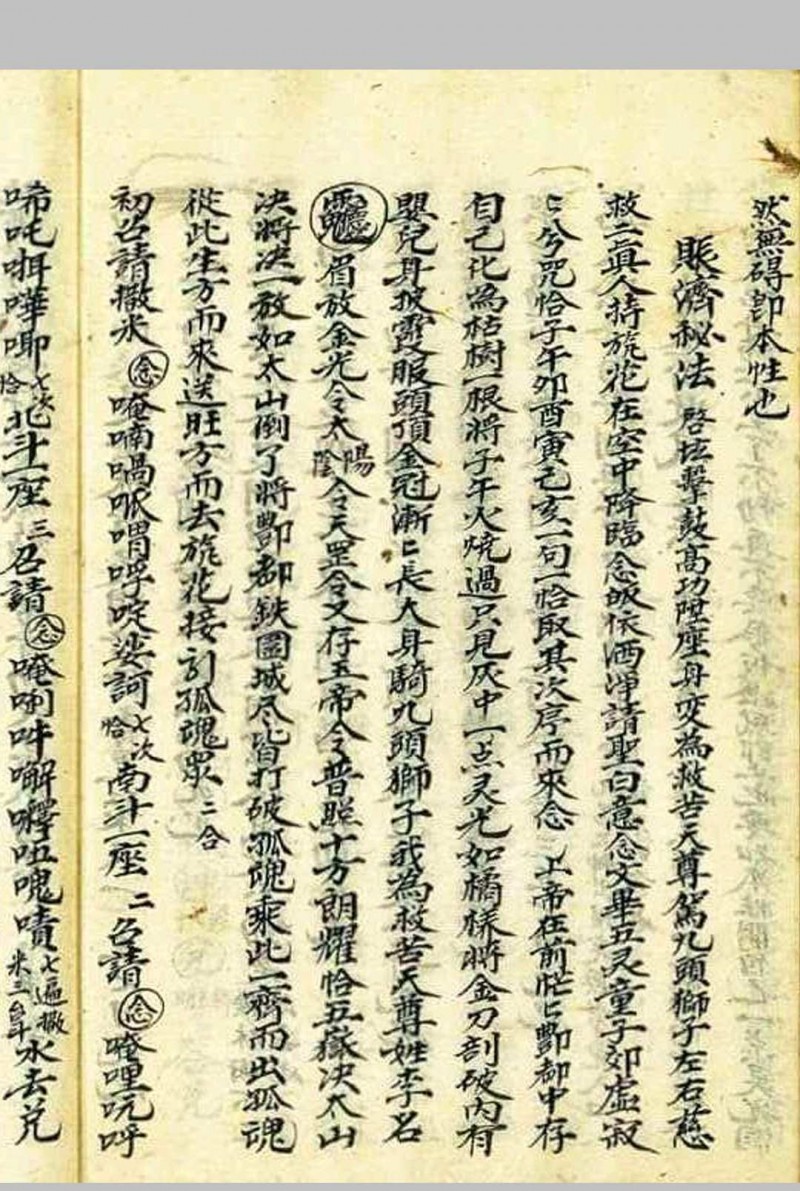 然無碍即本性也
賬濟秘法 啓坛擊鼓高功陞座身变為救苦天尊駕九頭獅子左右慈
救二真人持旛花在空中降臨念皈依洒淨請聖白意念文畢五灵童子郊虛寂
匕兮咒恰子午卯酉寅己亥一句一恰取其次序而來念匕上帝在前恾匕酆都中存
自己化為枯樹一根將子午火燒過只見灰中一点灵光如橘樣將金刀剖破内有
嬰兒身披霞服頭頂金冠漸匕長大身騎九頭獅子我為救苦天尊姓李名
眉放金光令太陽陰令天罡令又存五帝令普照十方朗耀恰五嶽决太山
决將决一放如太山倒了將酆都鉄圍城尽皆打破孤魂乘此一齊而出孤魂
從此生方而來送旺方而去旛花接引孤魂眾 二合
初召請撒米 念 唵喃喎呱喟呼啶娑訶 七次恰南斗一座 二召請 念 唵哩吭呼
唏吒咡嘩唧 七次恰北斗一座 三召請 念 唵唎吽嚪嚀呾嘳 七遍撒米三台斗水去兑